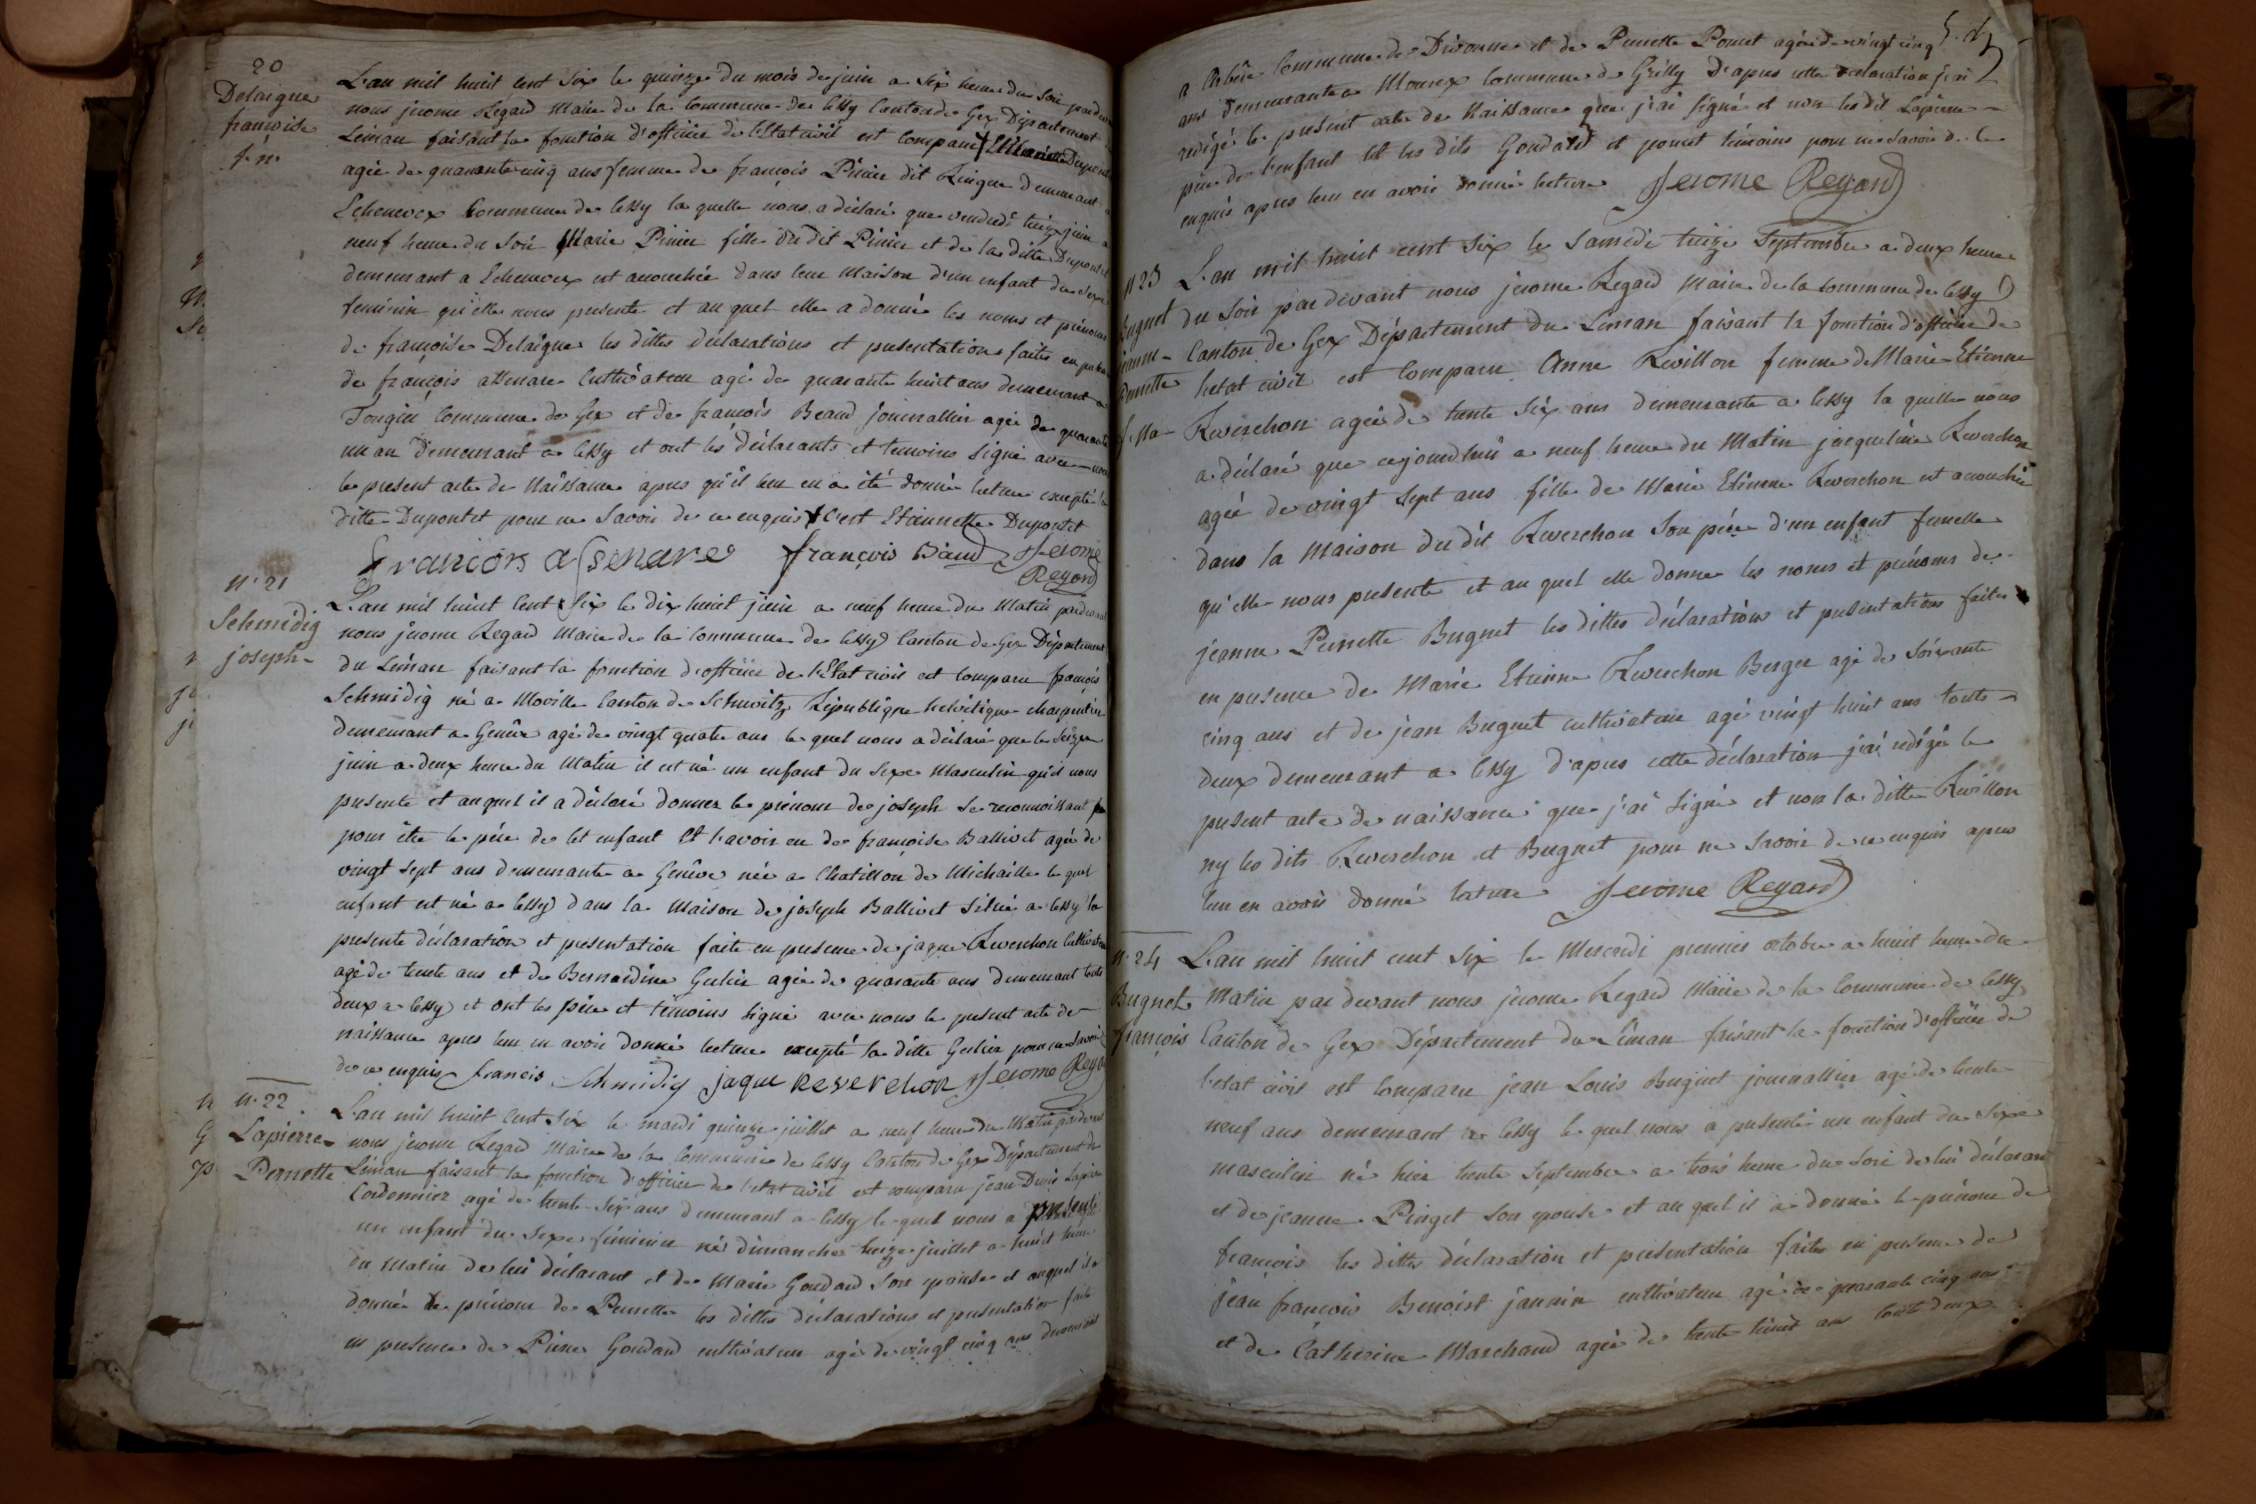 20
Delaigue
françoise
f. n.
L'an mil huit cent six le quinze du mois de juin a six heure du soir pardevant
nous jerome Regard Maire de la Commune de Cessy Canton de Gex Departement
Leman faisant la fonction d'officier de l'Etat civil est comparu
agée de quarante cinq ans femme de françois Pinier dit Ringue demeurant a
Echenevex Commune de Cessy la quelle nous a déclaré que vendredi treize juin a
neuf heure du soir Marie Pinier fille du dit Pinier et de la ditte Dupontet
demeurant a Echenevex est accouchée dans leur Maison d'un enfant du sexe
feminin qu'elle nous presente et au quel elle a donné les noms et prénoms
de françoise Delaigue les dittes déclarations et presentations faites en
de françois assenare Cultivateur agé de quarante huit ans demeurant a
Tougin Commune de Gex et de francois Beaud journallier agé de quarante
un an demeurant a Cessy et ont les déclarants et temoins signé avec nous
le present acte de Naissance apres qu'il leur en a été donné lecture excepté la
ditte Dupontet pour ne savoir de ce enquis c'est Etiennette Dupontet
francois assenare françois Baud Jerome
Regard
N° 21
Schmidig
joseph
L'an mil huit cent six le dix huit juin a neuf heure du Matin pardevant
nous jerome Regard Maire de la Commune de Cessy Canton de Gex Département
du Léman faisant la fonction d'officier de l'Etat civil est comparu françois
Schmidig né a Moville Canton de Schwitz République helvétique charpentier
demeurant a Genêve agé de vingt quatre ans le quel nous a déclaré que le seize
juin a deux heure du Matin il est né un enfant du sexe Masculin qu'il nous
presente et auquel il a déclaré donner le prénom de joseph se reconnoissant
pour être le père de cet enfant et l'avoir eu de françoise Ballivet agée de
vingt sept ans demeurante a Genêve née a Chatillon de Michaille le quel
enfant est né a Cessy dans la Maison de joseph Ballivet située a Cessy la
presente déclaration et presentation faite en presence de jaque Reverchon Cultivateur
agé de trente ans et de Bernardine Gerlier agée de quarante ans demeurant touts
deux a Cessy et ont les père et témoins signé avec nous le present acte de
naissance apres leur en avoir donné lecture excepté la ditte pour ne savoir
de ce enquis francois Schmidig jaque Reverchon Jerome Regard
N° 22
Lapierre
Pernette
L'an mil huit cent six le mardi quinze juillet a neuf heure du Matin pardevant
nous jerome Regard Maire de la Commune de Cessy Canton de Gex Département du
Léman faisant la fonction d'officier de l'etat civil est comparu jean Denis Lapierre
Cordonnier agé de trente six ans demeurant a Cessy le quel nous a présenté
un enfant du sexe féminin né dimanche treize juillet a huit heure
du Matin de lui déclarant et de Marie Goudard son epouse et auquel il a
donné le prénom de Pernette les dittes déclarations et presentation faite
en presence de Pierre Goudard cultivateur agé de vingt cinq ans demeurant
a Commune de Divonne et de Pernette Pomet agée de vingt cinq
ans demeurante a Mourex Commune de Grilly D'apres cette declaration j'ai
redigé le présent acte de Naissance que j'ai signé et non les dit Lapierre
père de l'enfant et les dits Goudard et pomet témoins pour ne savoir de le
enquis apres leur en avoir donné lecture Jerome Regard
N° 23
Bugnet
jeanne
Pernette
L'an mil huit cent six le samedi treize Septembre a deux heure
du soir par devant nous jerome Regard Maire de la commune de Cessy
Canton de Gex Département du Léman faisant la fonction d'officier de
l'etat civil est comparu Anne Revillon femme de Marie Etienne
Reverchon agée de trente six ans demeurante a Cessy la quelle nous
a déclaré que cejourdhui a neuf heure du Matin jacqueline Reverchon
agée de vingt sept ans fille de Marie Etienne Reverchon est accouchée
dans la Maison du dit Reverchon son père d'un enfant femelle
qu'elle nous presente et au quel elle donne les noms et prénoms de
jeanne Pernette Bugnet les dittes déclaration et presentation faites
en presence de Marie Etienne Reverchon Berger agé de soixante
cinq ans et de jean Bugnet cultivateur agé vingt huit ans touts
deux demeurant a Cessy d'apres cette déclaration j'ai redigé le
present acte de naissance que j'ai signé et non la ditte Revillon
ny les dits Reverchon et Bugnet pour ne savoir de ce enquis apres
leur en avoir donné lecture Jerome Regard
N° 24
Bugnet
françois
L'an mil huit cent six le Mercredi premier octobre a huit heure du
Matin par devant nous jerome Regard Maire de la Commune de Cessy
Canton de Gex Département du Léman faisant la fonction d'officier de
l'etat civil est comparu jean Louis Bugnet journallier agé de trente
neuf ans demeurant a Cessy le quel nous a presenté un enfant du sexe
masculin né hier trente Septembre a trois heure du soir de lui déclarant
et de jeanne Pinget son epouse et au quel il a donné le prénom de
françois les dittes déclaration et presentation faites en presence de
jean françois Benoist jannin cultivateur agé de quarante cinq ans
et de Catherine Marchand agée de trente huit ans touts deux